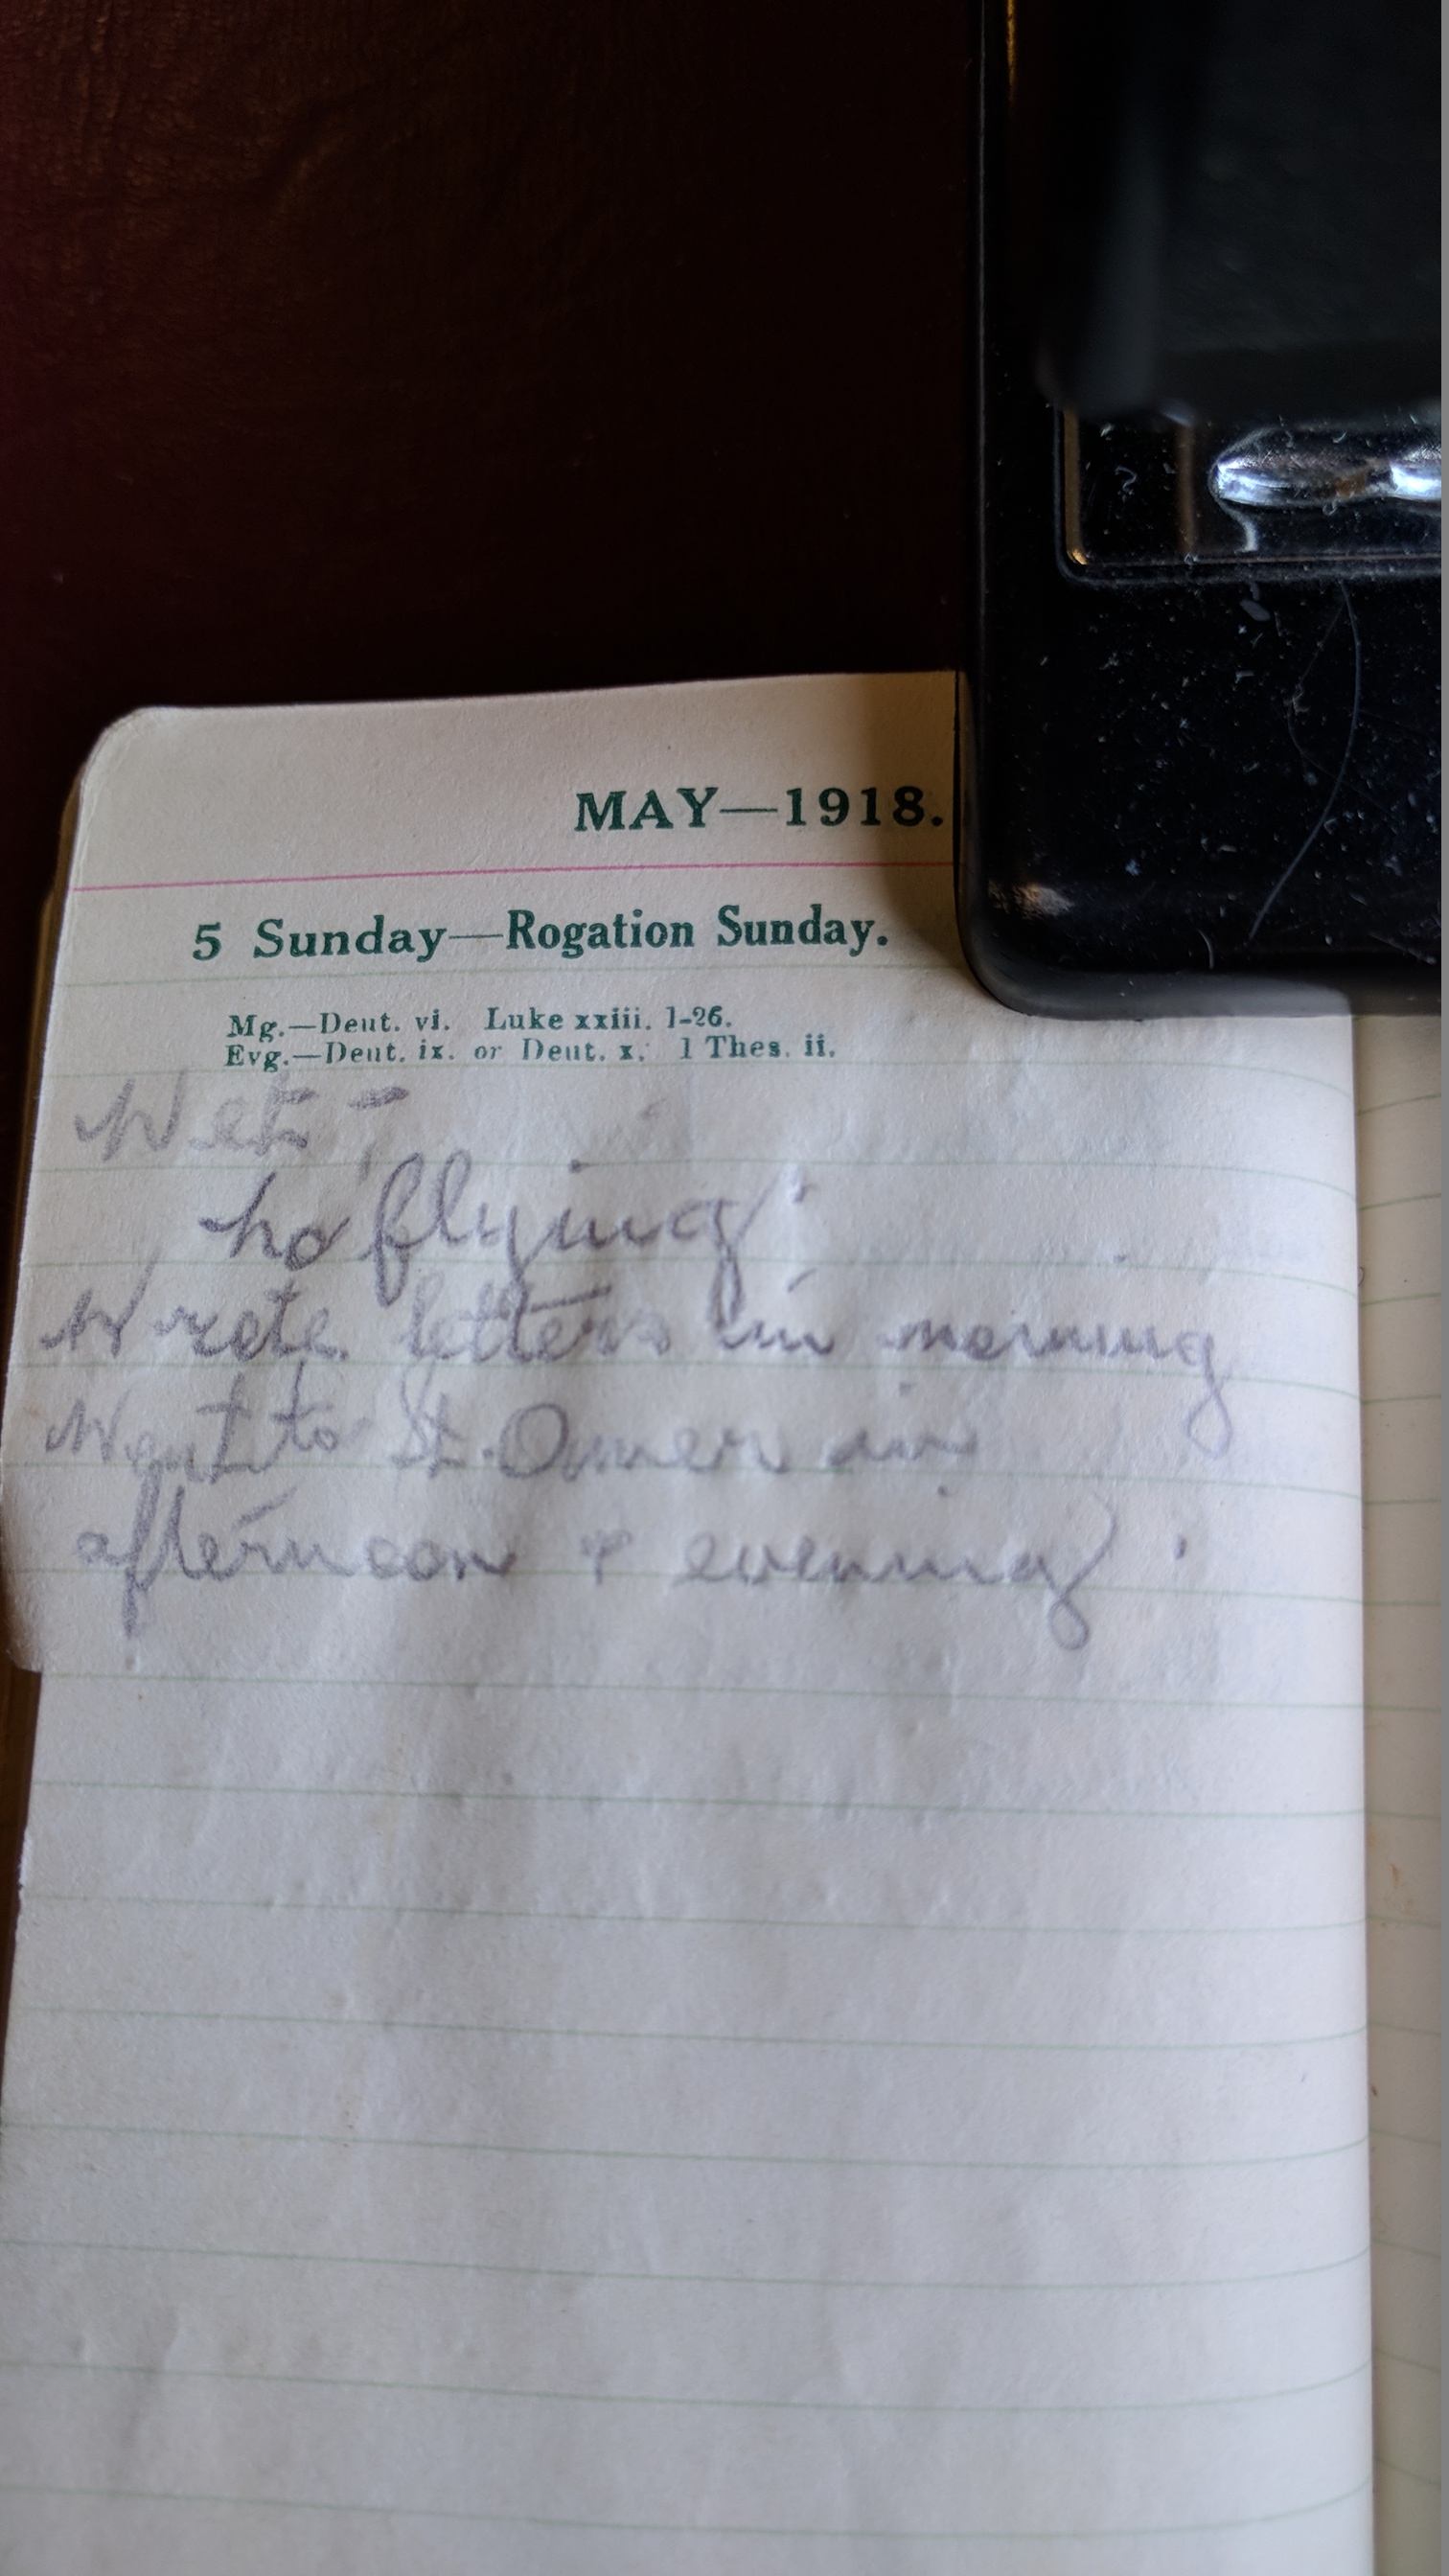 MAY—1918.
5 Sunday—Rogation Sunday.
Mg.—Deut. vi. Luke xxiii. 1-26.
Evg.—Deut. ix. or Deut. x. 1 Thes. ii.
Wet -
no flying.
Wrote letters in morning
Went to St. Omer in
afternoon & evening.